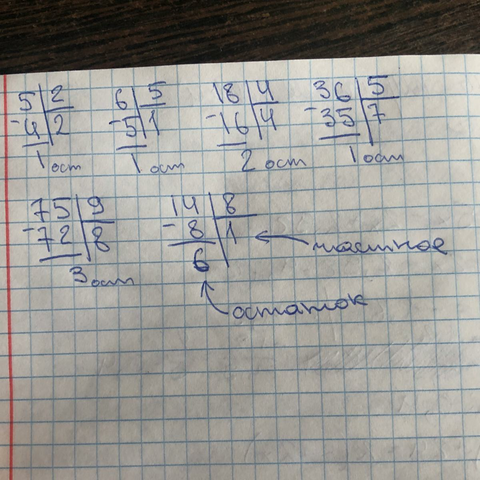 5 2 6 5 18 4 36 5
-4 2 -5 1 -16 4 -35 7
1 ост 1 ост 2 ост 1 ост
75 9 14 8
-72 8 -8 1 частное
3 ост 6
остаток